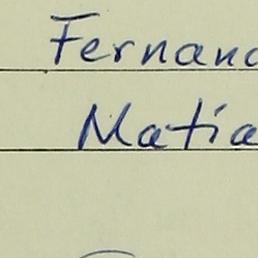 Fernand
Matia